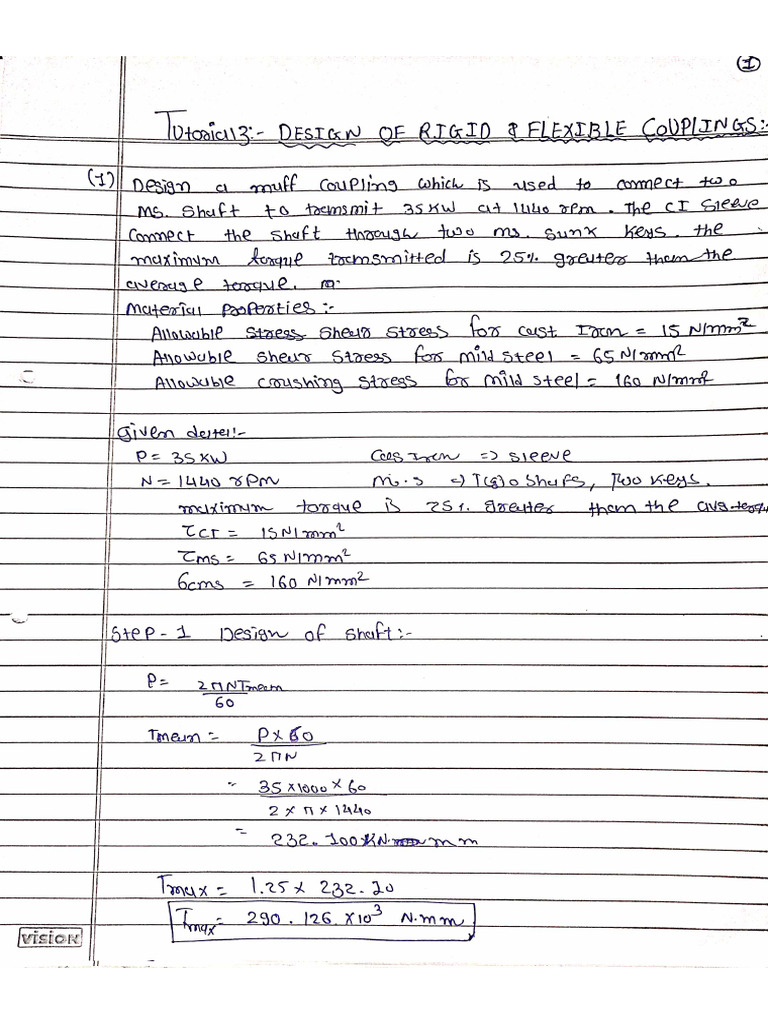 (1)
Tutorial 3:- DESIGN OF RIGID & FLEXIBLE COUPLINGS:-
(1) Design a muff coupling which is used to connect two
ms. shaft to transmit 35 KW at 1440 rpm. The CI sleeve
connect the shaft through two ms. sunk keys. the
maximum torque transmitted is 25% greater them the
average torque.
Material properties:-
Allowable stress shear stress for cast Iron = 15 N/mm²
Allowable shear stress for mild steel = 65 N/mm²
Allowable crushing stress for mild steel = 160 N/mm²
given data:-
P = 35 KW
Cas Iron => sleeve
N = 1440 rpm
m.s => Two shafs, Two keys.
maximum torque is 25% greater them the avg. torqu
τCI = 15 N/mm²
τms = 65 N/mm²
σcms = 160 N/mm²
Step-1 Design of shaft:-
P = 2πNTmean
60
Tmean = P×60
2πN
= 35×1000×60
2×π×1440
= 232.100 KN.mm
Tmax = 1.25 × 232.10
Tmax = 290.126.×10³ N.mm
vision